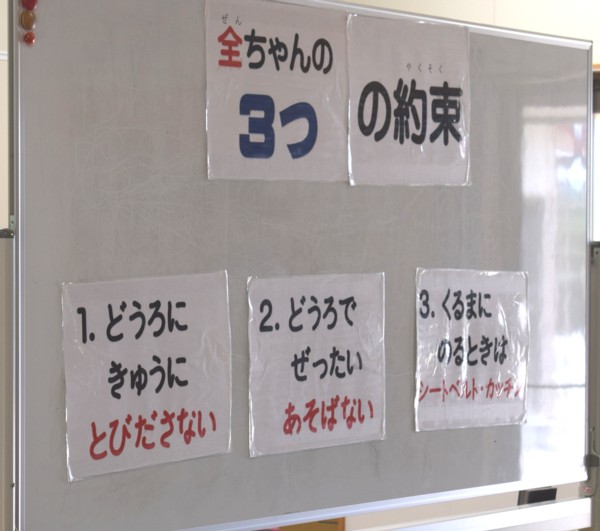 ぜん
全ちゃんの
3つ
やくそく
の約束
1. どうろに
きゅうに
とびださない
2. どうろで
ぜったい
あそばない
3. くるまに
のるときは
シートベルト・カッチン